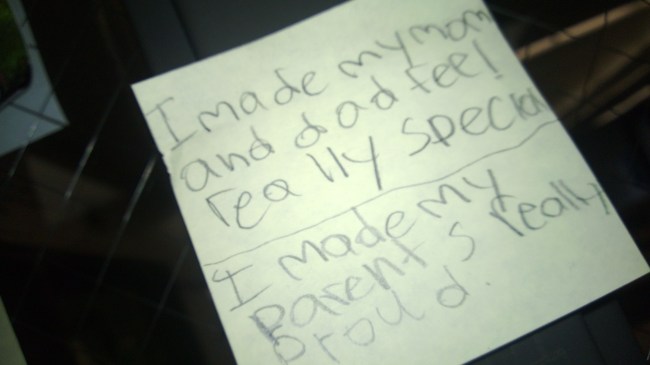 I made my mom
and dad feel
really special
I made my
parent s really
proud.